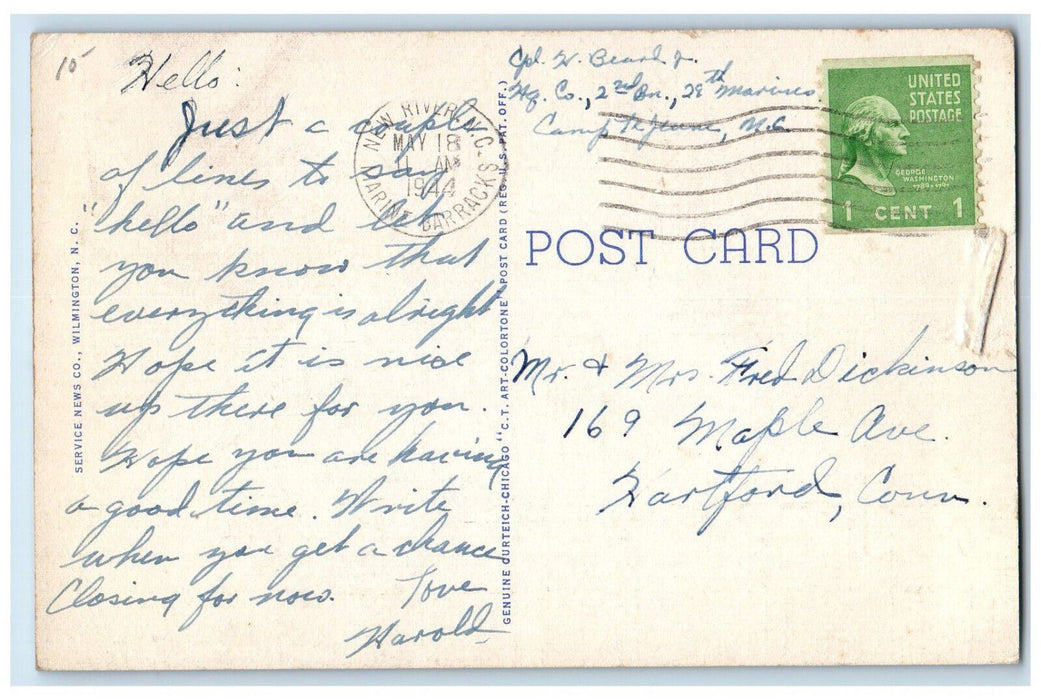 10
Hello:
Just a couple
of lines to say
"hello" and let
you know that
everything is alright
Hope it is nice
up there for you.
Hope you are having
a good time. Write
when you get a chance
Closing for now. Love
Harold
SERVICE NEWS CO., WILMINGTON, N. C.
NEW RIVER, N.C.
MAY 18
1 AM
1944
MARINE BARRACKS
GENUINE CURTEICH-CHICAGO "C.T. ART-COLORTONE" POST CARD (REG. U.S. PAT. OFF.)
Cpl. H. Beard Jr.
Hq. Co., 2nd Bn., 28th Marines
Camp Lejeune, N.C.
UNITED
STATES
POSTAGE
GEORGE
WASHINGTON
1789-1797
1 CENT 1
POST CARD
Mr. & Mrs. Fred Dickinson
169 Maple Ave.
Hartford, Conn.